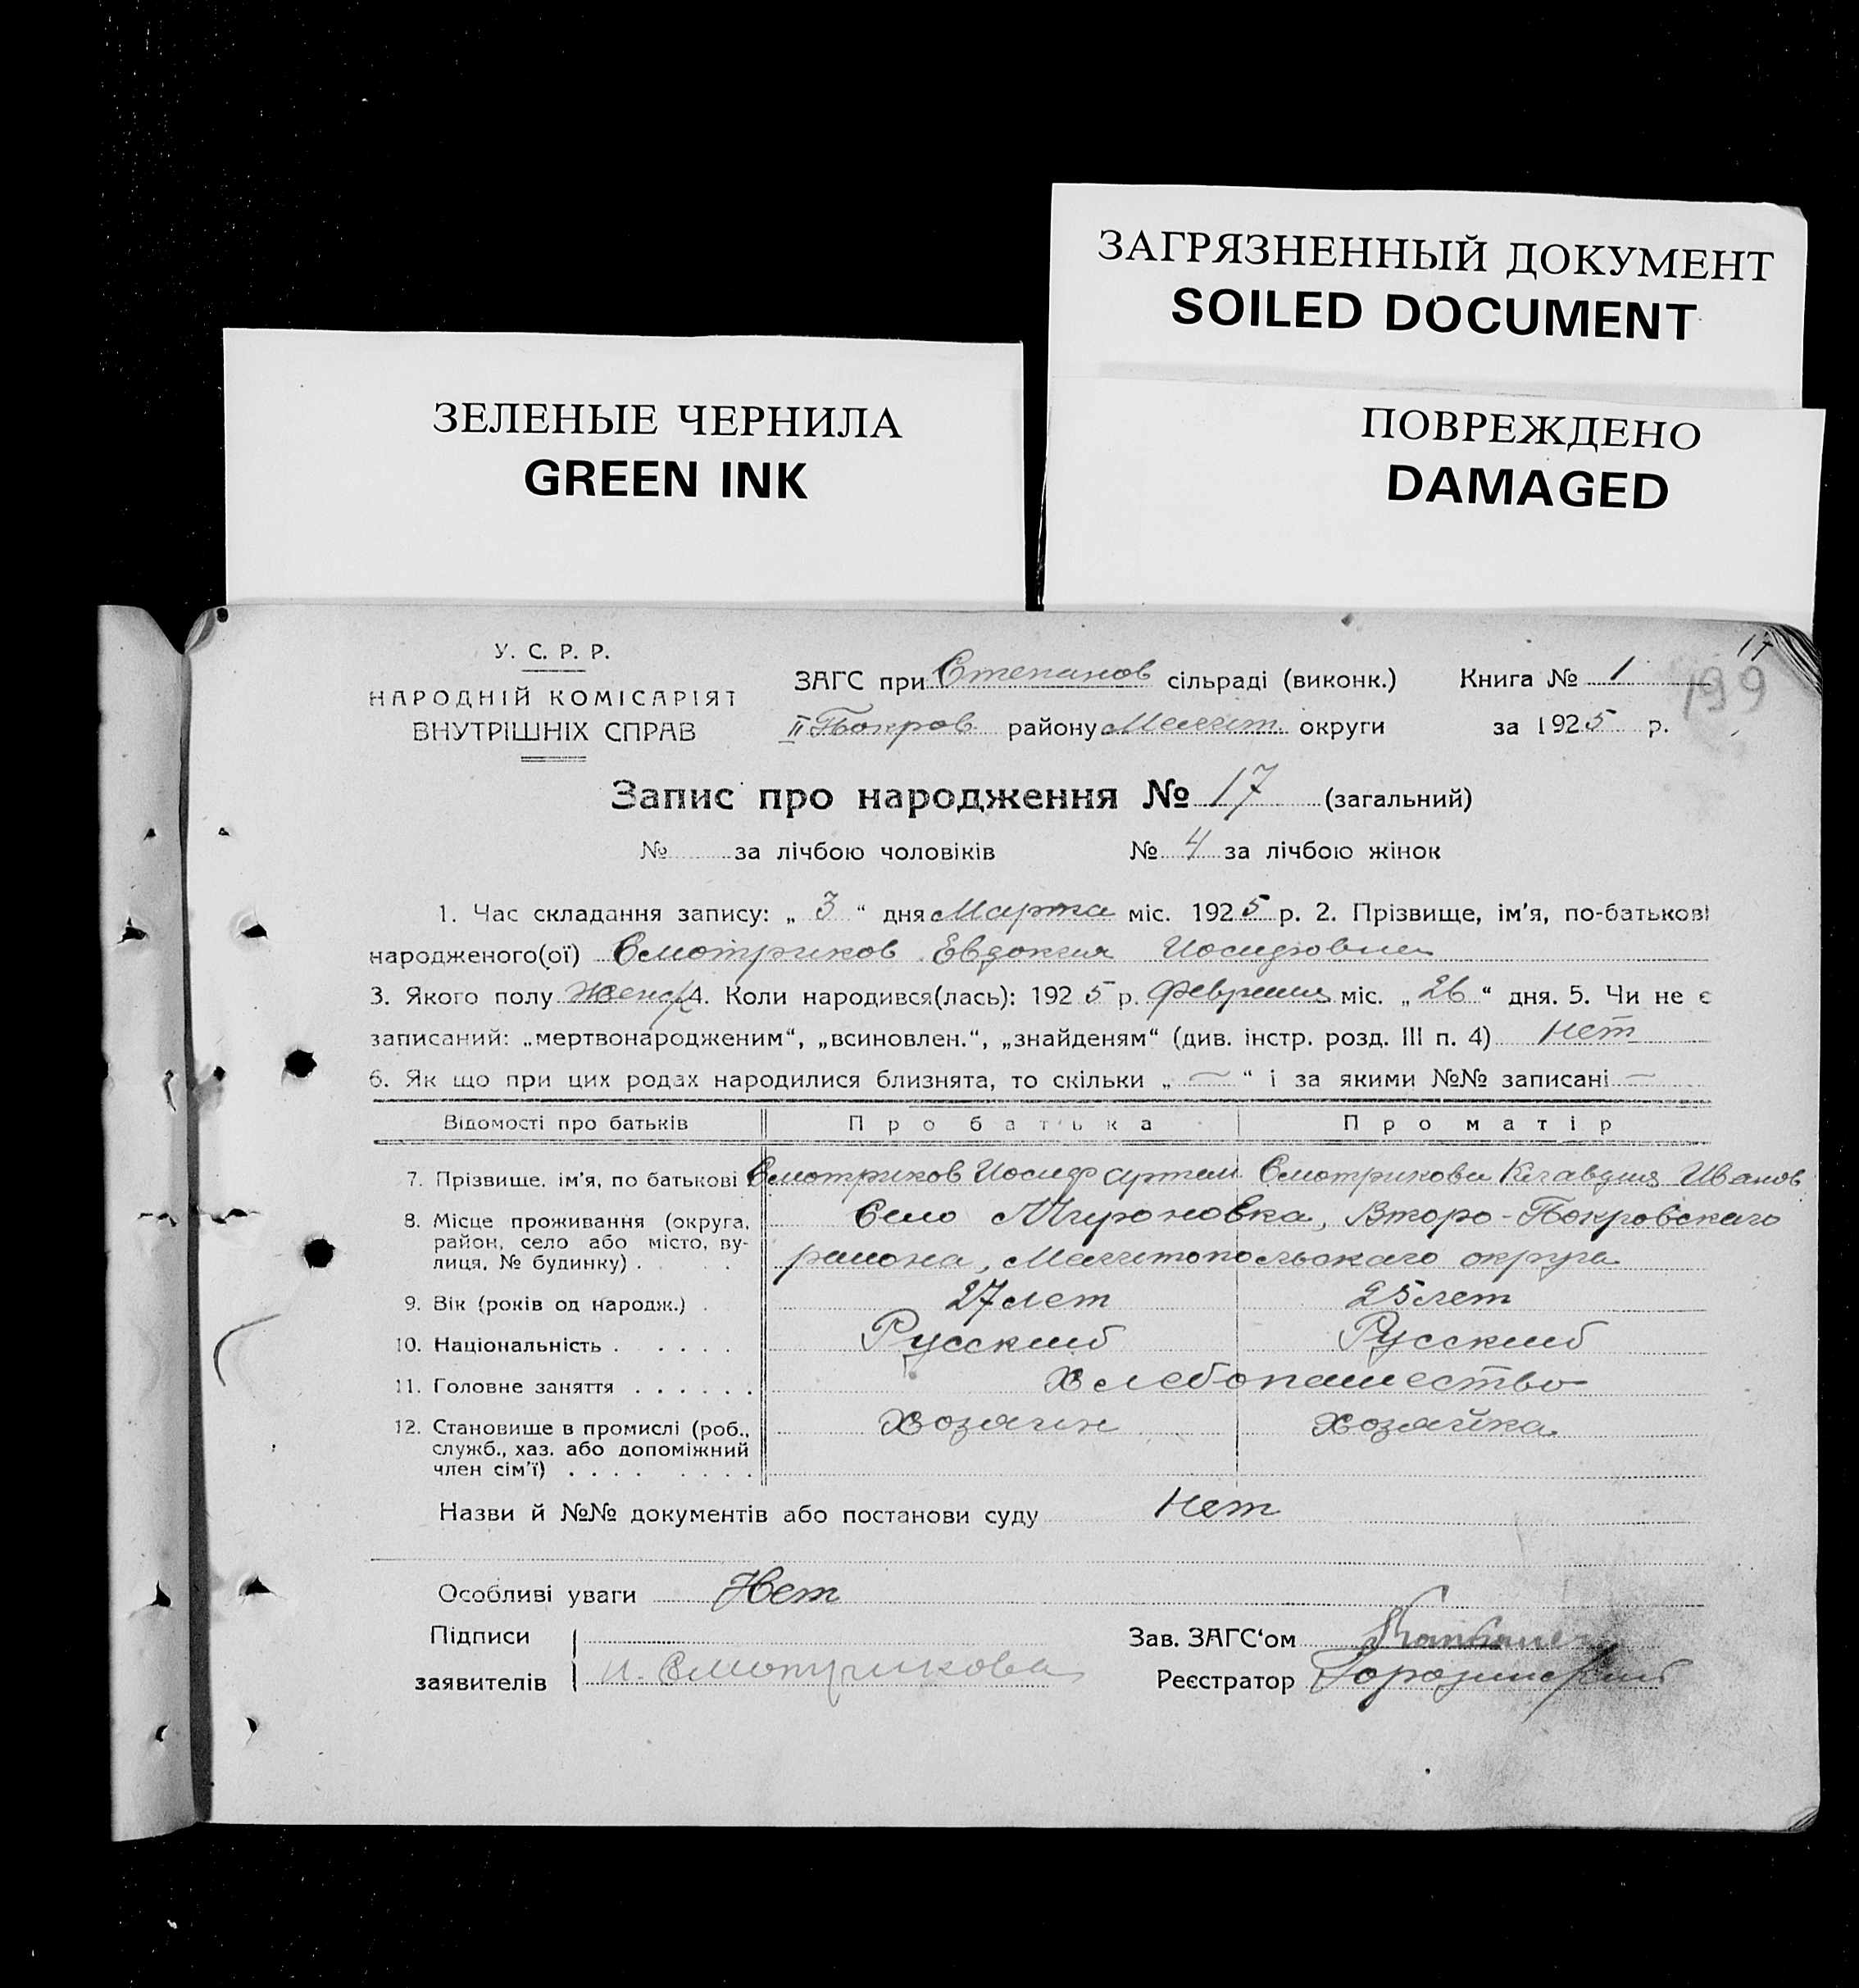 ЗАГРЯЗНЕННЫЙ ДОКУМЕНТ
SOILED DOCUMENT
ЗЕЛЕНЫЕ ЧЕРНИЛА
GREEN INK
ПОВРЕЖДЕНО
DAMAGED
17
199
У. С. Р. Р.
НАРОДНІЙ КОМІСАРІЯТ
ВНУТРІШНІХ СПРАВ
ЗАГС при Степанов сільраді (виконк.) Книга № 1
II Покров району Мелит. округи за 1925 р.
Запис про народження № 17 (загальний)
№ за лічбою чоловіків № 4 за лічбою жінок
1. Час складання запису: „ 3 “ дня Марта міс. 1925 р. 2. Прізвище, ім'я, по-батькові
народженого(ої) Смотриков Евдокия Иосифовна
3. Якого полу Женск 4. Коли народився(лась): 1925 р. Февраля міс. „ 26 “ дня. 5. Чи не є
записаний: „мертвонародженим“, „всиновлен.“, „знайденям“ (див. інстр. розд. III п. 4) нет
6. Як що при цих родах народилися близнята, то скільки „ — “ і за якими №№ записані —
Відомості про батьків Про батька Про матір
7. Прізвище, ім'я, по батькові Смотриков Иосиф Артем Смотрикова Клавдия Иванов
8. Місце проживання (округа, Село Мироновка, Второ-Покровскаго
район, село або місто, ву- района, Мелитопольскаго округа
лиця, № будинку) . . .
9. Вік (років од народж.) . 27 лет 25 лет
10. Національність . . . . . Русский Русский
11. Головне заняття . . . . . . Хлебопашество
12. Становище в промислі (роб., Хозяин Хозяйка
служб., хаз. або допоміжний
член сім'ї) . . . . . . . .
Назви й №№ документів або постанови суду нет
Особливі уваги Нет
Підписи Зав. ЗАГС‘ом
заявителів И. Смотрикова Реєстратор